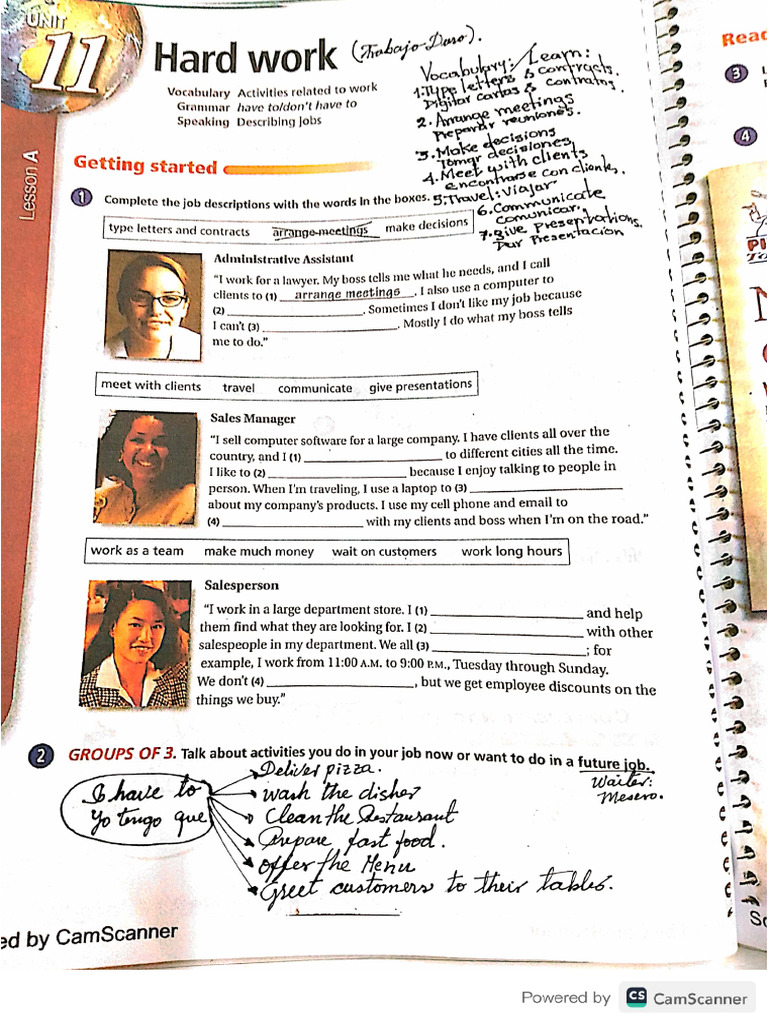 UNIT
11
Hard work (Trabajo-Duro).
Vocabulary Activities related to work
Grammar have to/don't have to
Speaking Describing jobs
Vocabulary: Learn:
1. Type letters & contracts.
Digitar cartas & contratos.
2. Arrange meetings
Preparar reuniones.
3. Make decisions
Tomar decisiones
4. Meet with clients
encontrarse con clientes.
5. Travel: Viajar
6. Communicate
comunicar.
7. Give Presentations.
Dar Presentación
Lesson A
Getting started
1 Complete the job descriptions with the words in the boxes.
type letters and contracts arrange meetings make decisions
Administrative Assistant
"I work for a lawyer. My boss tells me what he needs, and I call
clients to (1) arrange meetings. I also use a computer to
(2) ____________. Sometimes I don't like my job because
I can't (3) ____________. Mostly I do what my boss tells
me to do."
meet with clients travel communicate give presentations
Sales Manager
"I sell computer software for a large company. I have clients all over the
country, and I (1) ____________ to different cities all the time.
I like to (2) ____________ because I enjoy talking to people in
person. When I'm traveling, I use a laptop to (3) ____________
about my company's products. I use my cell phone and email to
(4) ____________ with my clients and boss when I'm on the road."
work as a team make much money wait on customers work long hours
Salesperson
"I work in a large department store. I (1) ____________ and help
them find what they are looking for. I (2) ____________ with other
salespeople in my department. We all (3) ____________; for
example, I work from 11:00 A.M. to 9:00 P.M., Tuesday through Sunday.
We don't (4) ____________, but we get employee discounts on the
things we buy."
2 GROUPS OF 3. Talk about activities you do in your job now or want to do in a future job.
Waiter:
Mesero.
I have to
Yo tengo que
Deliver pizza.
wash the dishes
Clean the Restaurant
Prepare fast food.
Offer the Menu
Greet customers to their tables.
Read
3
4
ed by CamScanner
Powered by CS CamScanner